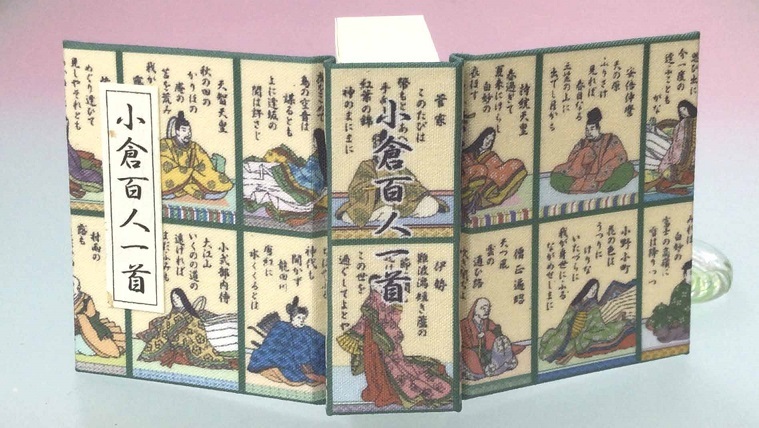 小倉百人一首
天智天皇
秋の田の
かりほの
庵の
苫を荒み
我が
めぐり逢ひて
見しやそれとも
鳥の空音は
謀るとも
よに逢坂の
関は許さじ
小式部内侍
大江山
いくのの道の
遠ければ
まだふみも
村雨の
露も
神代も
聞かず
龍田川
唐紅に
水くくるとは
小倉百人一首
菅家
このたびは
幣もとりあへず
手
紅葉の錦
神のまにまに
伊勢
難波潟短き蘆の
この世を
過ぐしてよとや
持統天皇
春過ぎて
夏来にけらし
白妙の
衣ほす
安倍仲麿
天の原
ふりさけ
見れば
春日なる
三笠の山に
出でし月かも
思ひ出に
今一度の
逢ふことも
がな
僧正遍昭
天つ風
雲の
通ひ路
小野小町
花の色は
うつりに
けりな
いたづらに
我が身世にふる
ながめせしまに
白妙の
富士の高嶺に
雪は降りつつ